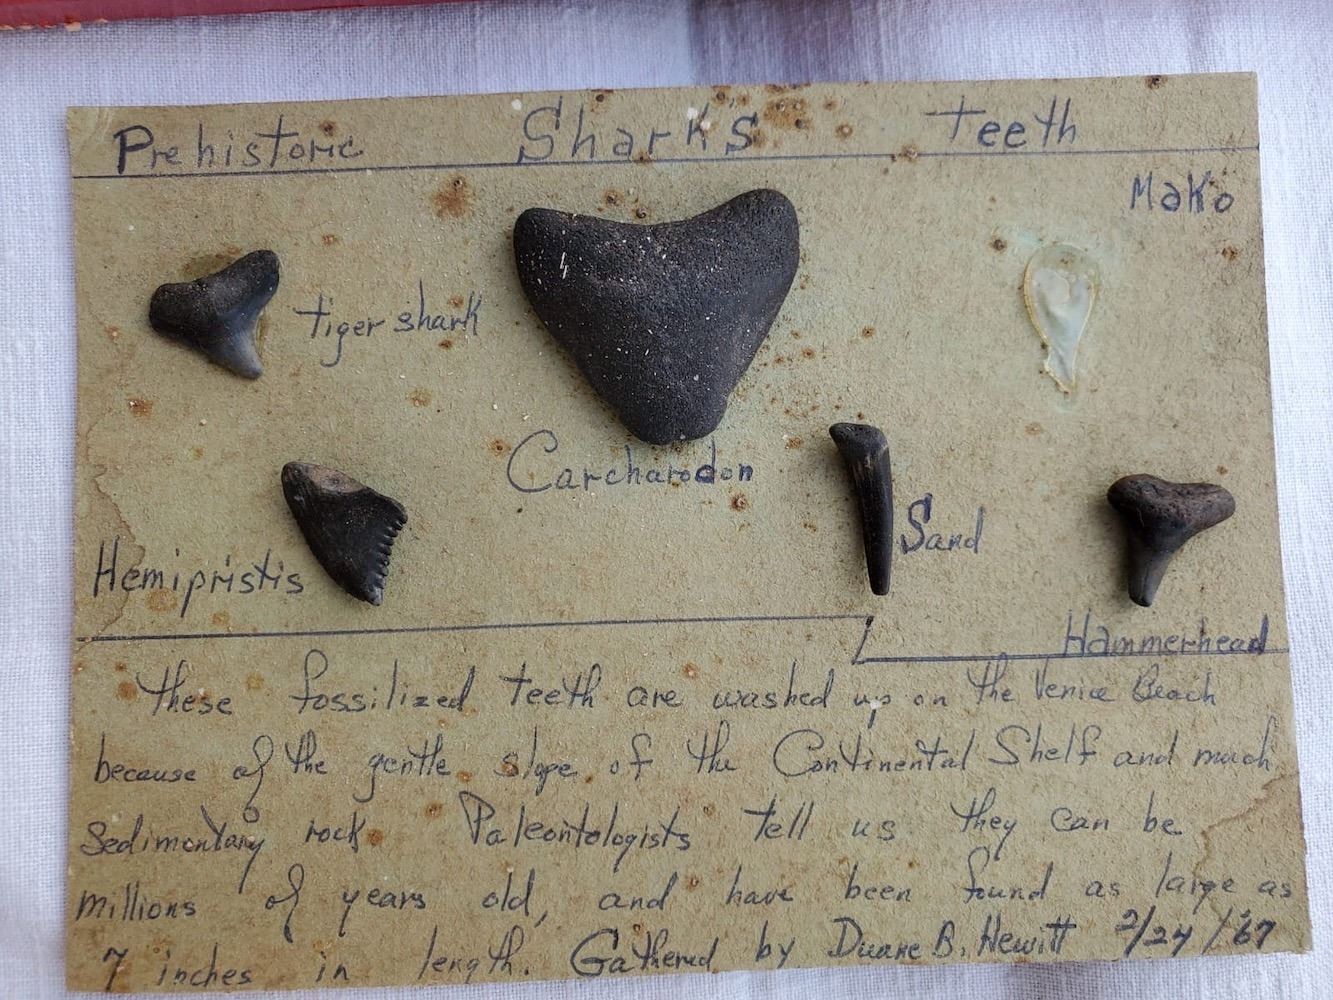 Prehistoric Shark's Teeth
Mako
tiger shark
Carcharodon
Sand
Hemipristis
Hammerhead
These fossilized teeth are washed up on the Venice Beach
because of the gentle slope of the Continental Shelf and much
Sedimentary rock. Paleontologists tell us they can be
millions of years old, and have been found as large as
7 inches in length. Gathered by Duane B. Hewitt 2/24/'67